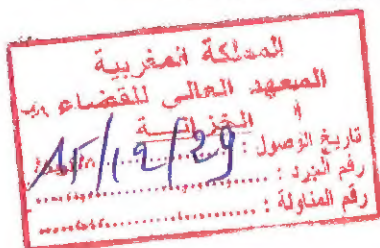 المملكة المغربية
المعهد العالي للقضاء
الخزانة
تاريخ الوصول : 15/12/29
رقم الجرد :
رقم المناولة :